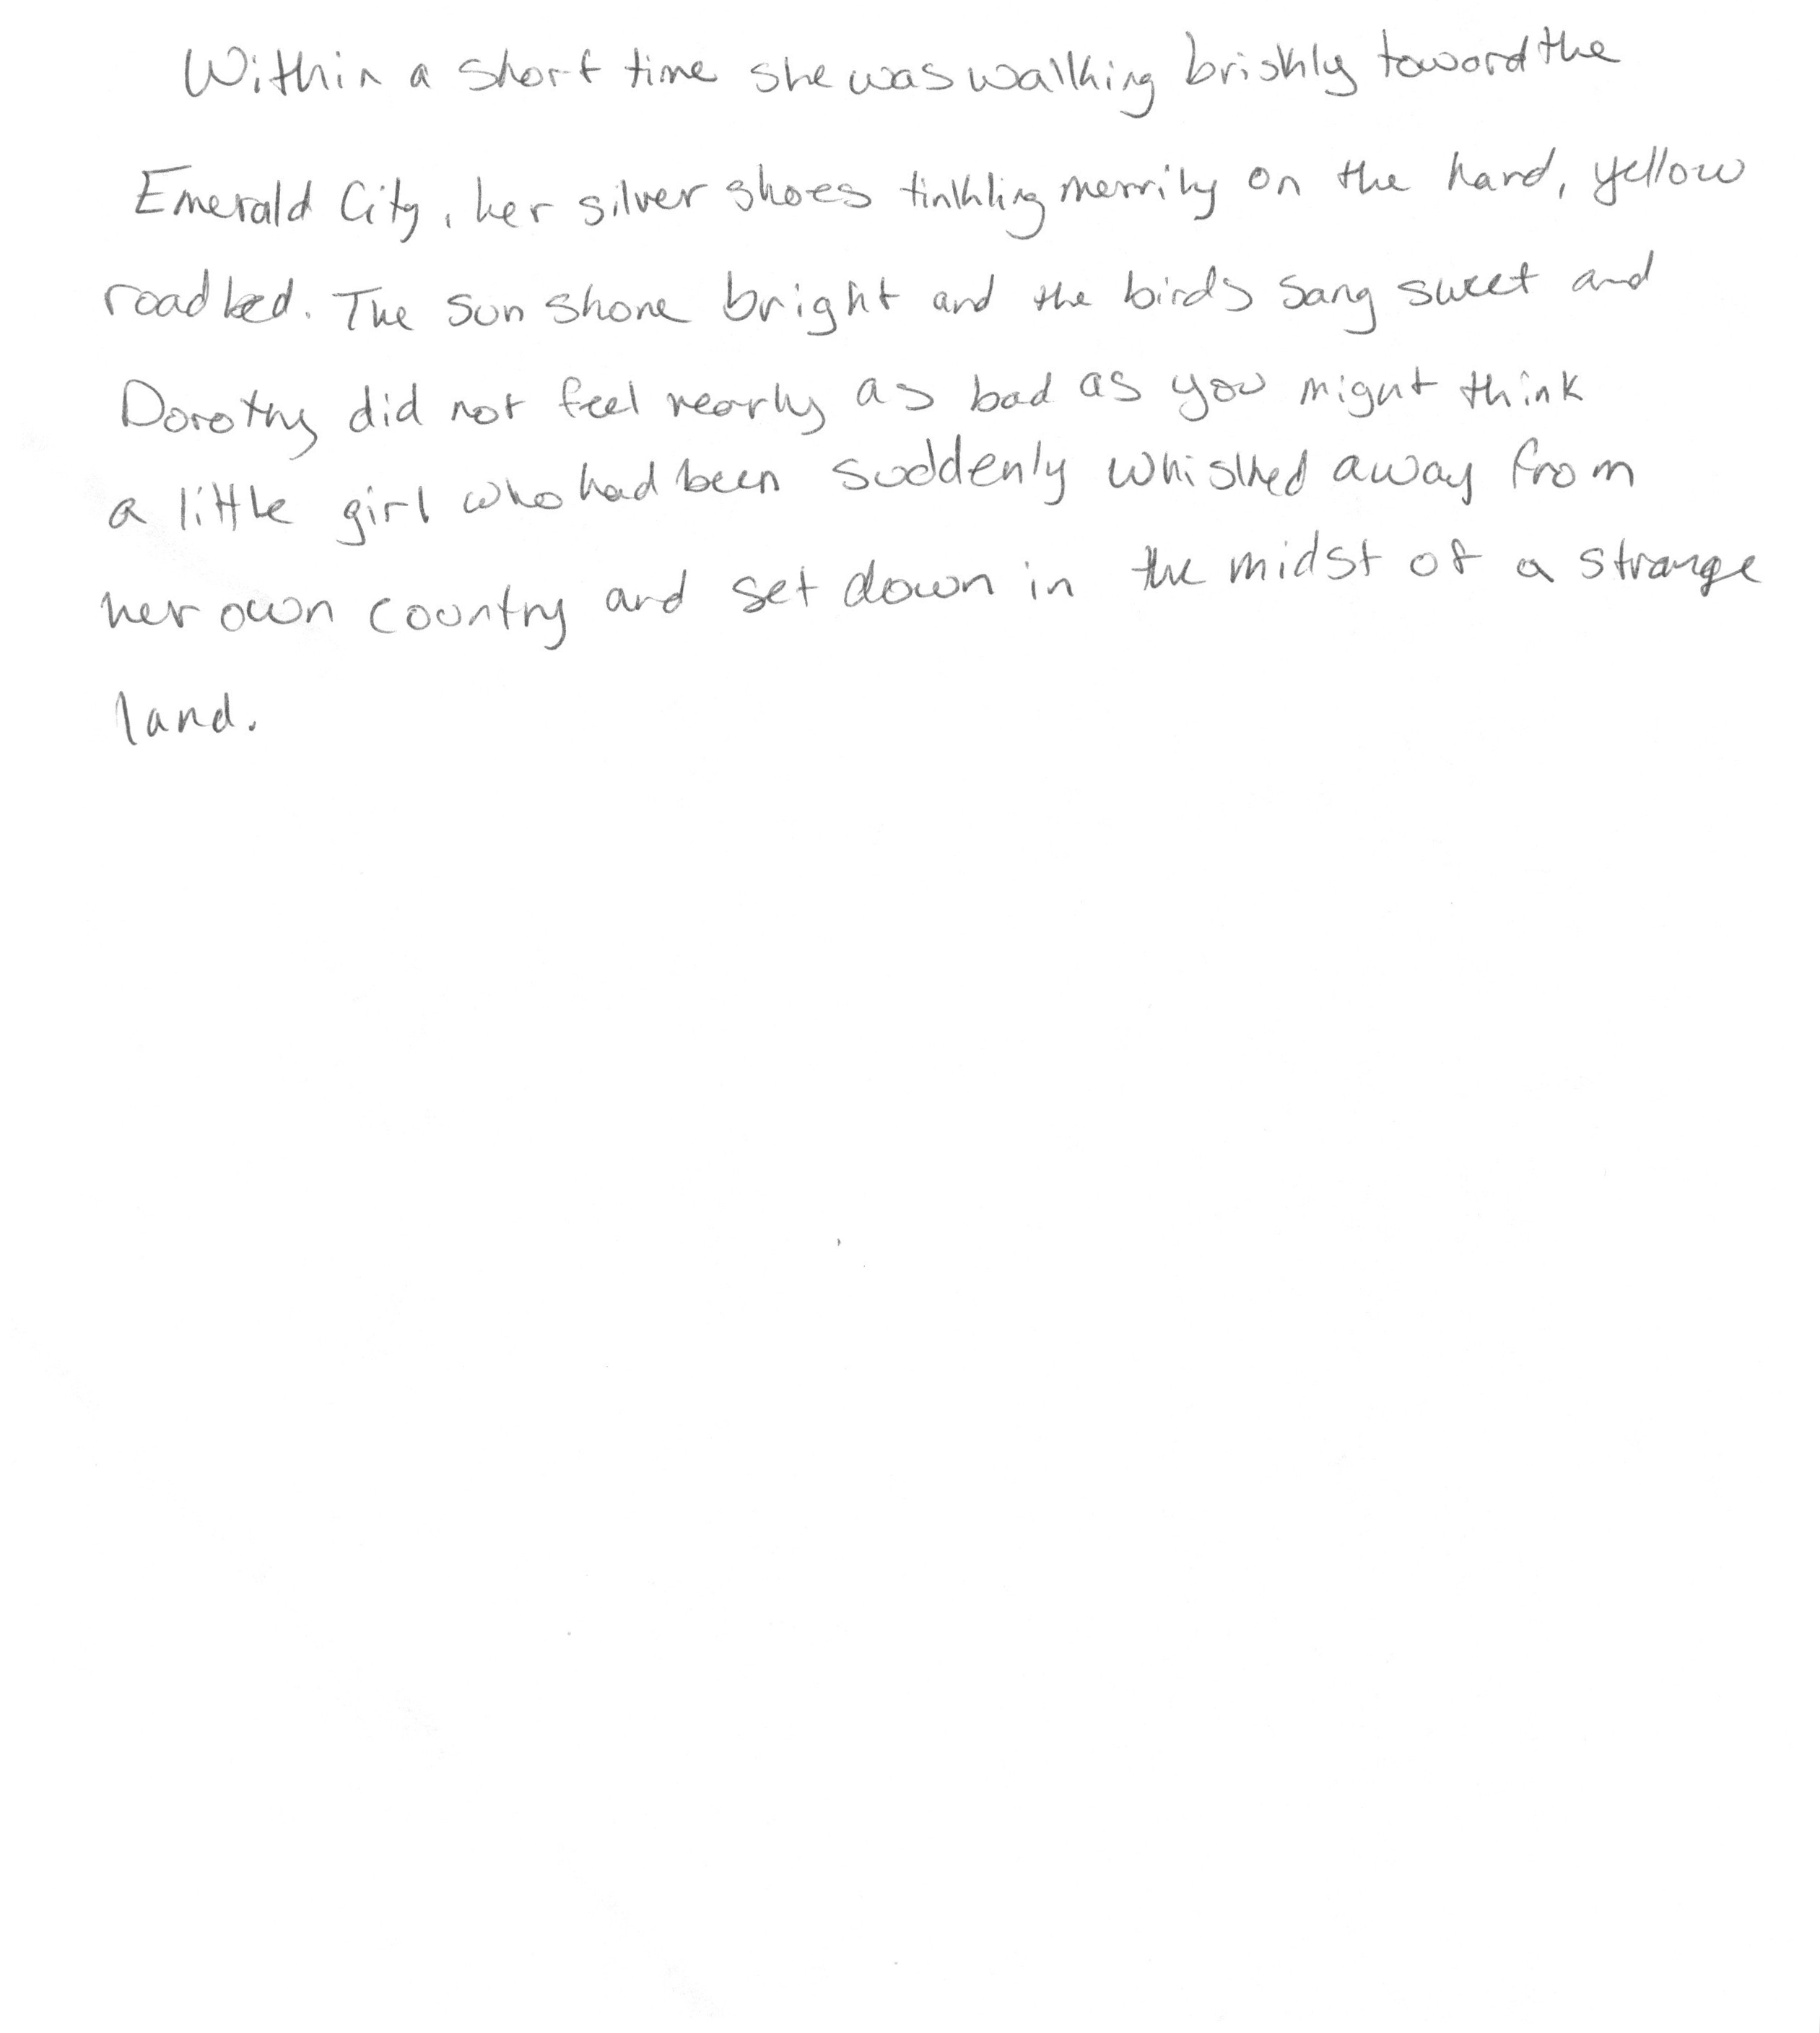 Within a short time she was walking briskly toward the
Emerald City, her silver shoes tinkling merrily on the hard, yellow
roadbed. The sun shone bright and the birds sang sweet and
Dorothy did not feel nearly as bad as you might think
a little girl who had been suddenly whisked away from
her own country and set down in the midst of a strange
land.